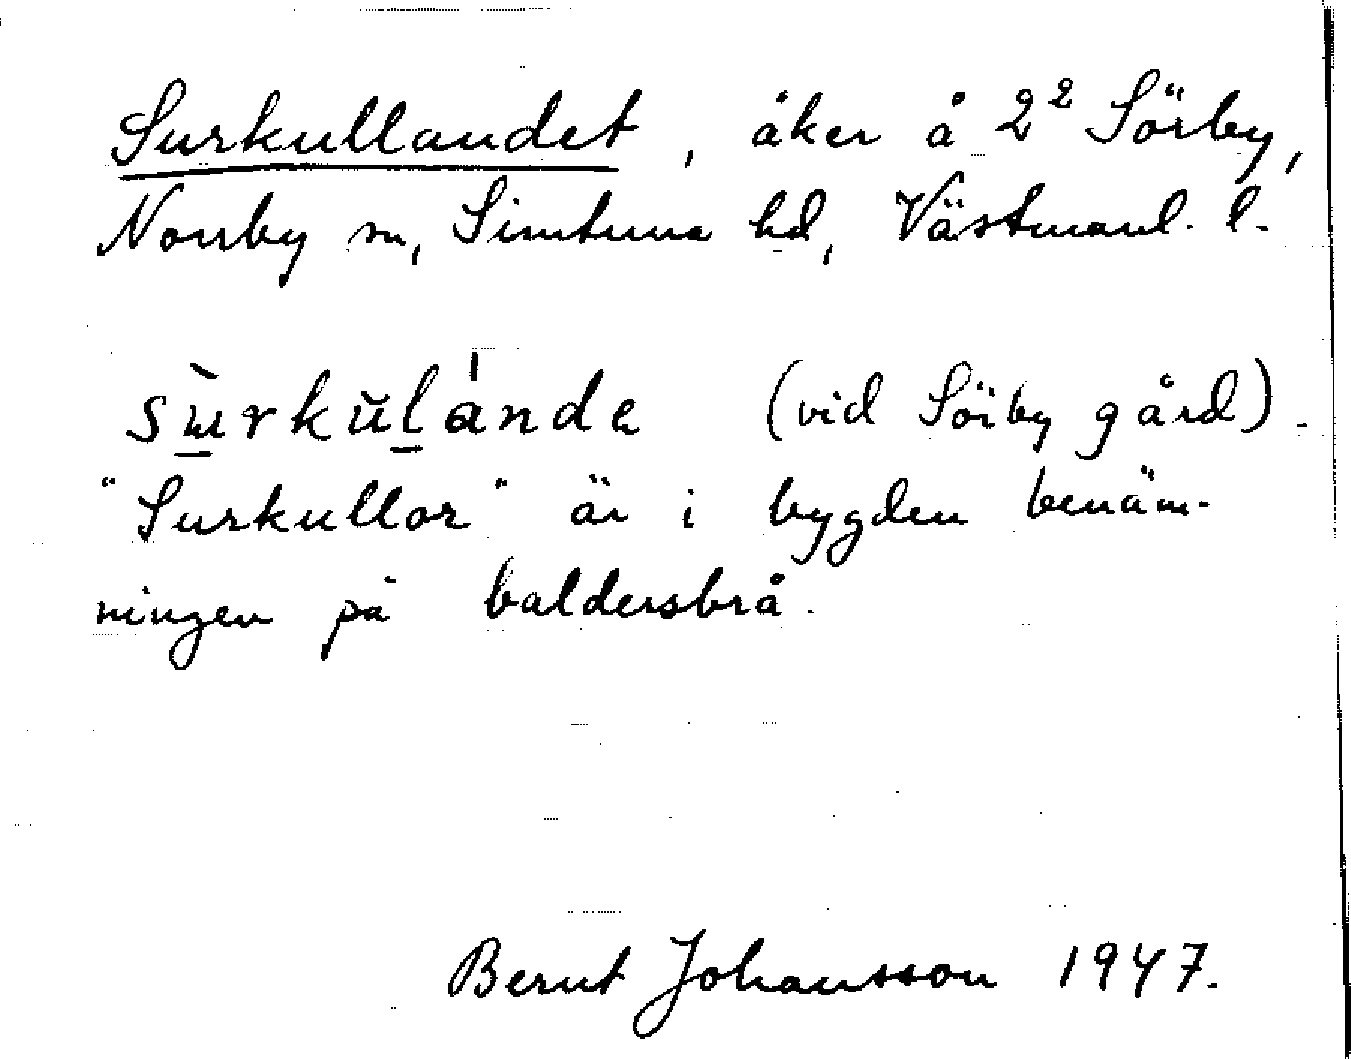 Surkullandet, åker å 2² Sörby,
Norrby sn, Simtuna hd, Västmanl. l.
(vid Sörby gård).
"Surkullor" är i bygden benäm-
ningen på baldersbrå.
Bernt Johansson 1947.